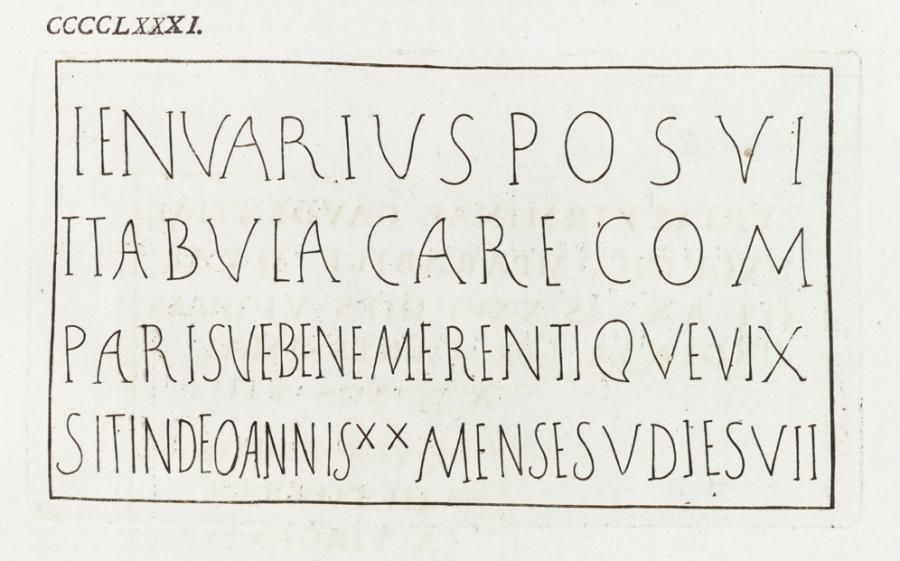 CCCCLXXXI.
IENVARIVS POSVI
ITABVLA CARE COM
PARISVEBENEMERENTIQVEVIX
SITINDEOANNISXXMENSESVDIESVII